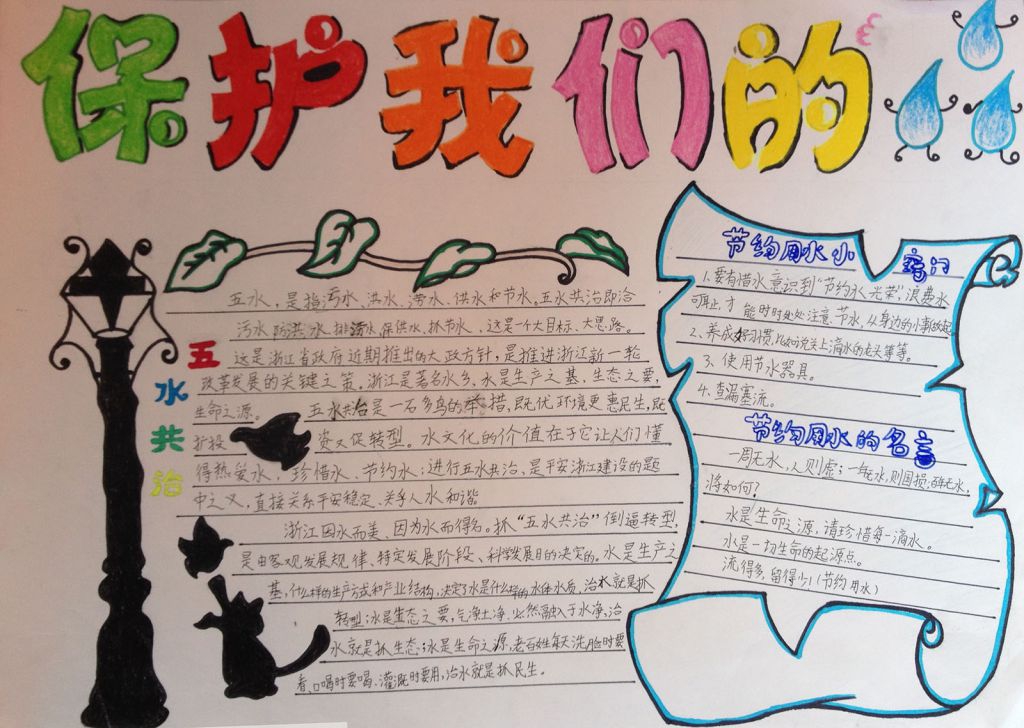 保护我们的
五水共治
五水，是指污水、洪水、涝水、供水和节水。五水共治即治
污水、防洪水、排涝水、保供水、抓节水，这是一个大目标、大思路。
这是浙江省政府近期推出的大政方针，是推进浙江新一轮
改革发展的关键之策。浙江是著名水乡，水是生产之基，生态之要，
生命之源。 五水共治是一石多鸟的举措，既优环境更惠民生，既
扩投 资又促转型。水文化的价值在于它让人们懂
得热爱水，珍惜水、节约水；进行五水共治、是平安浙江建设的题
中之义，直接关系平安稳定、关乎人水和谐
浙江因水而美、因为水而得名。抓“五水共治”倒逼转型，
是由客观发展规律、特定发展阶段、科学发展目的决定的。水是生产之
基，什么样的生产方式和产业结构，决定了水是什么样的水体水质，治水就是抓
转型；水是生态之要，气净土净，必然融入于水净，治
水就是抓生态；水是生命之源，老百姓每天洗脸时要
看、口喝时要喝、灌溉时要用，治水就是抓民生。
节约用水小窍门
1、要有惜水意识到“节约水光荣”，浪费水
可耻，才能时时处处注意节水，从身边的小事做起
2、养成好习惯，比如说关上滴水的龙头等等。
3、使用节水器具。
4、查漏塞流。
节约用水的名言
一周无水，人则虚；一年无水，则国损；百年无水，
将如何？
水是生命之源，请珍惜每一滴水。
水是一切生命的起源点。
流得多，留得少！（节约用水）